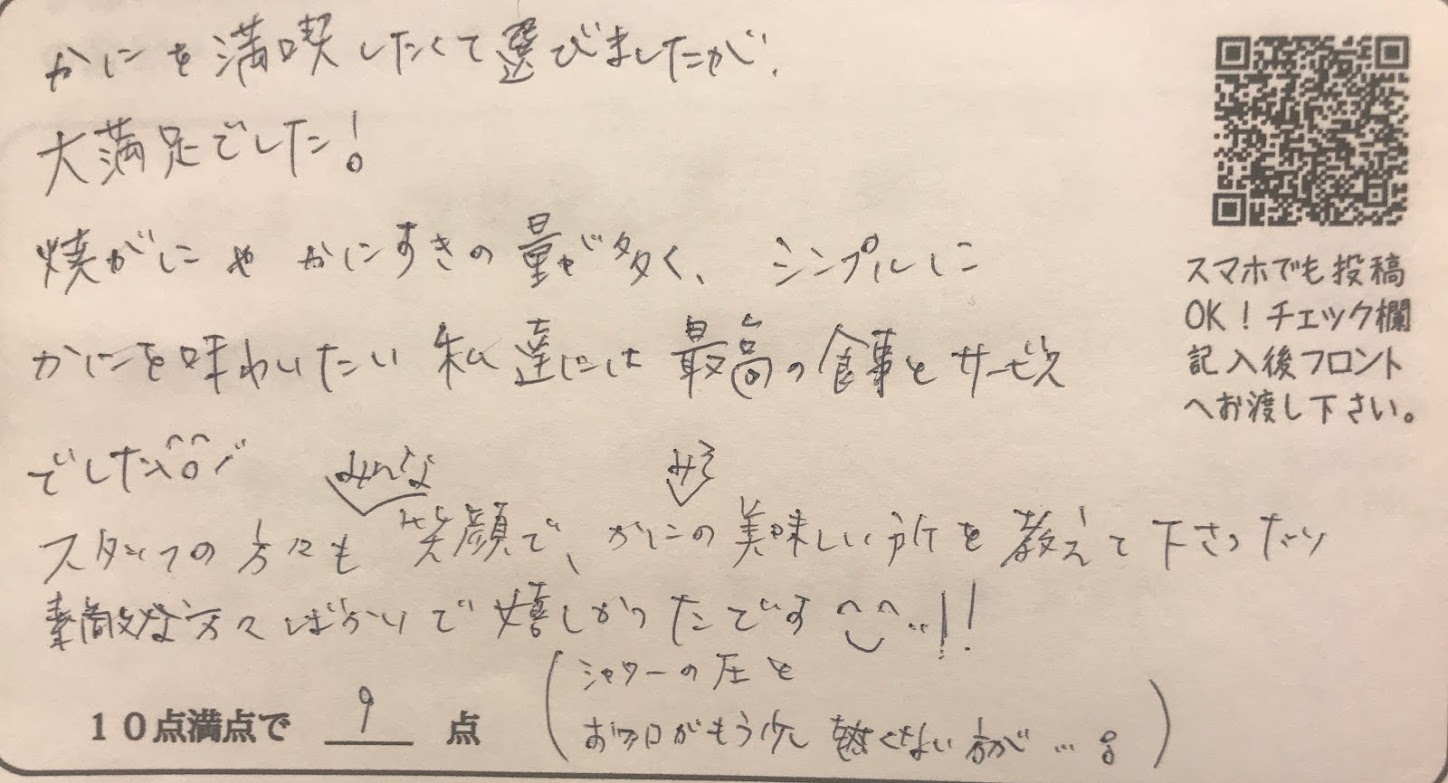 かにを満喫したくて選びましたが、
大満足でした!
焼がにやかにすきの量が多く、シンプルに
かにを味わいたい私達には最高の食事とサービス
でした^o^
みんな
みそ
スタッフの方々も笑顔で、かにの美味しい所を教えて下さったり
素敵な方々ばかりで嬉しかったです^^!!
10点満点で 9 点
(シャワーの圧と
がもう少し くない方が…。)
スマホでも投稿
OK!チェック欄
記入後フロント
へお渡し下さい。